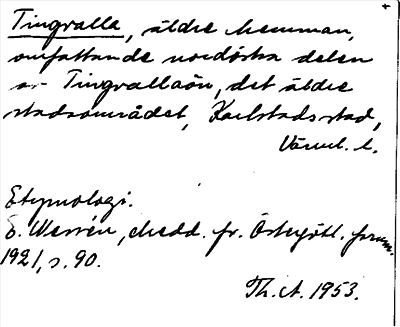 Tingvalla, äldre hemman,
omfattande nordöstra delen
av Tingvallaön, det äldre
stadsområdet, Karlstads stad,
Värml. l.
Etymologi.
E. Wessén, Medd. fr. Östergötl. fornm.
1921, s. 90.
Th. A. 1953.